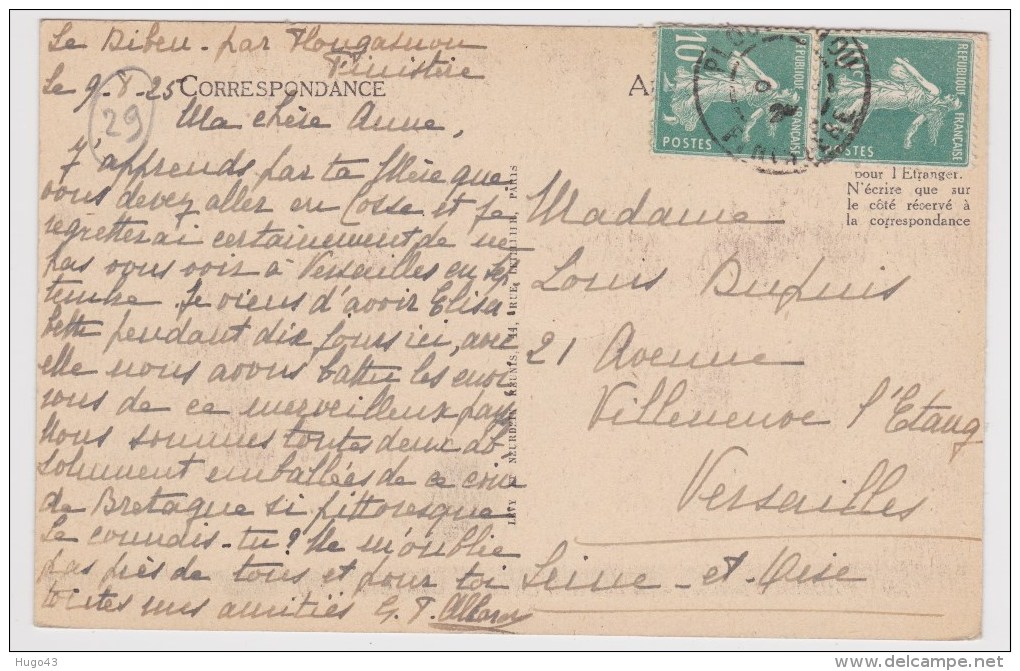 Le Diben par Plougasnou
Finistère
Le 9-8-25
29
CORRESPONDANCE
Ma chère Anne,
J'apprends par ta Mère que
vous devez aller en Cosse et je
regretterai certainement de ne
pas vous voir à Versailles en sep
tembre. Je viens d'avoir Elisa
beth pendant dix jours ici, avec
elle nous avons battu les envi
rons de ce merveilleux pays
Nous sommes toutes deux ab
solument emballées de ce coin
de Bretagne si pittoresque
Le connais-tu? Ne m'oublie
pas près de tous et pour toi
toutes mes amitiés G. T. Allard
LEVY ET NEURDEIN RÉUNIS, 44, RUE LETELLIER, PARIS
10c
POSTES
REPUBLIQUE FRANÇAISE
POSTES
REPUBLIQUE FRANÇAISE
pour l'Etranger.
N'écrire que sur
le côté réservé à
la correspondance
Madame
Louis Dupuis
21 Avenue
Villeneuve l'Etang
Versailles
Seine-et-Oise
Hugo43
delcampe.net